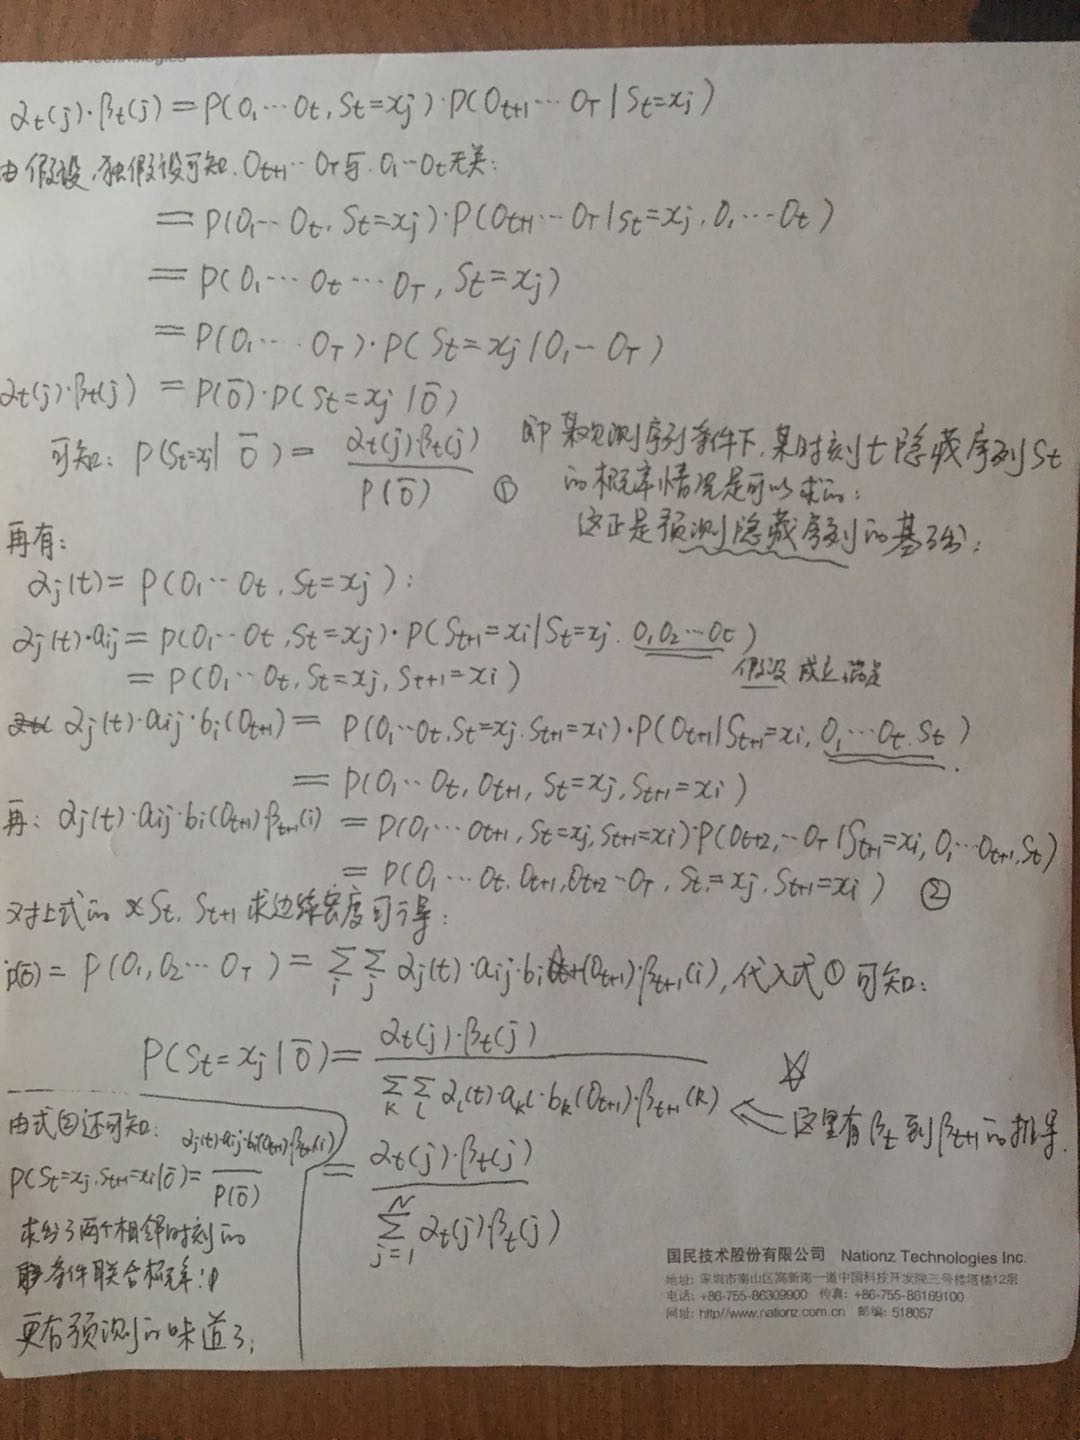 αt(j)·βt(j) = P(O1···Ot, St=xj)·P(Ot+1···OT | St=xj)
由假设,独假设可知,Ot+1···OT与 O1···Ot无关:
= P(O1···Ot, St=xj)·P(Ot+1···OT | St=xj, O1···Ot)
= P(O1···Ot···OT, St=xj)
= P(O1···OT)·P(St=xj | O1—OT)
αt(j)·βt(j) = P(Ō)·P(St=xj | Ō)
可知: P(St=xj | Ō) = αt(j)·βt(j) / P(Ō) ①
即某观测序列条件下,某时刻t隐藏序列St
的概率情况是可以求的;
这正是预测隐藏序列的基础;
再有:
αj(t) = P(O1···Ot, St=xj):
αj(t)·aij = P(O1···Ot, St=xj)·P(St+1=xi | St=xj, O1,O2···Ot)
假设成立
= P(O1···Ot, St=xj, St+1=xi)
αj(t)·aij·bi(Ot+1) = P(O1···Ot, St=xj, St+1=xi)·P(Ot+1 | St+1=xi, O1···Ot, St)
= P(O1···Ot, Ot+1, St=xj, St+1=xi)
再: αj(t)·aij·bi(Ot+1)·βt+1(i) = P(O1···Ot+1, St=xj, St+1=xi)·P(Ot+2,···OT | St+1=xi, O1···Ot+1, St)
= P(O1···Ot, Ot+1, Ot+2···OT, St=xj, St+1=xi) ②
对上式的 St, St+1 求边缘密度可得:
P(Ō) = P(O1,O2···OT) = Σi Σj αj(t)·aij·bi(Ot+1)·βt+1(i), 代入式①可知:
P(St=xj | Ō) = αt(j)·βt(j) / Σk Σl αl(t)·akl·bk(Ot+1)·βt+1(k)
☆
这里有βt到βt+1的推导.
= αt(j)·βt(j) / Σ(j=1)^N αt(j)βt(j)
由式②还可知:
P(St=xj, St+1=xi | Ō) = αj(t)·aij·bi(Ot+1)βt+1(i) / P(Ō)
求出了两个相邻时刻的
条件联合概率!
更有预测的味道了;
国民技术股份有限公司 Nationz Technologies Inc.
地址: 深圳市南山区高新南一道中国科技开发院三号楼塔楼12层
电话: +86-755-86309900 传真: +86-755-86169100
网址: http//www.nationz.com.cn 邮编: 518057